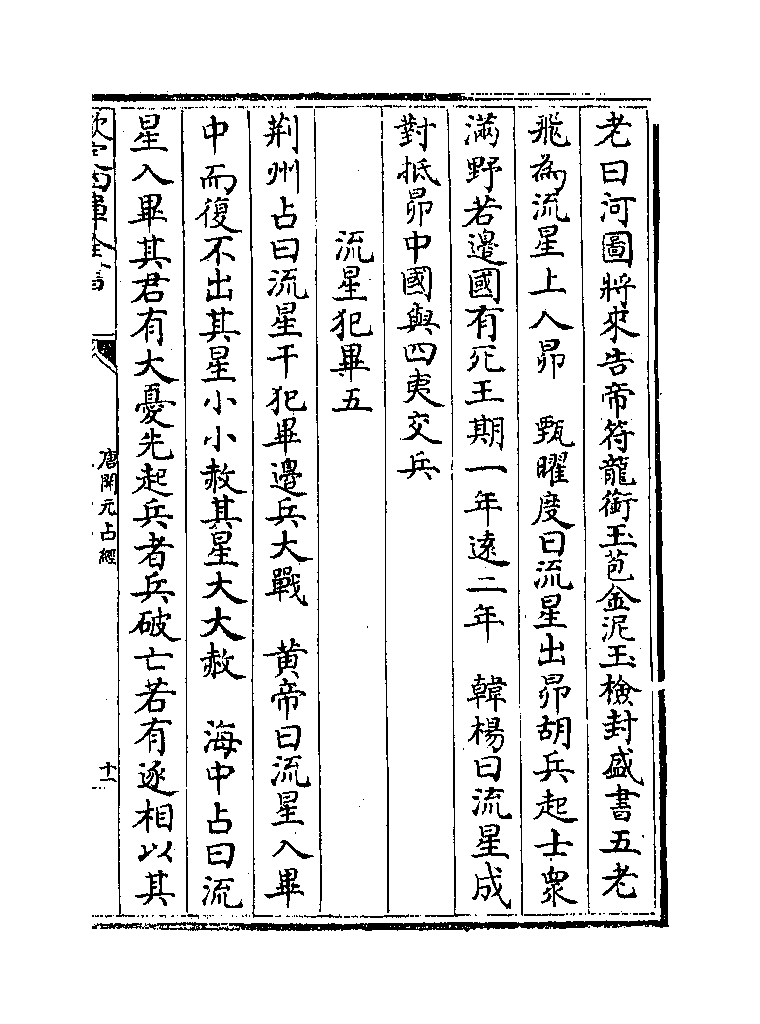 老曰河圖將來告帝符龍銜玉苞金泥玉檢封盛書五老
飛為流星上入昴　甄曜度曰流星出昴胡兵起士衆
滿野若邊國有死王期一年遠二年　韓楊曰流星成
對抵昴中國與四夷交兵
流星犯畢五
荆州占曰流星干犯畢邊兵大戰　黄帝曰流星入畢
中而復不出其星小小赦其星大大赦　海中占曰流
星入畢其君有大憂先起兵者兵破亡若有逐相以其
欽定四庫全書
唐開元占經
十一